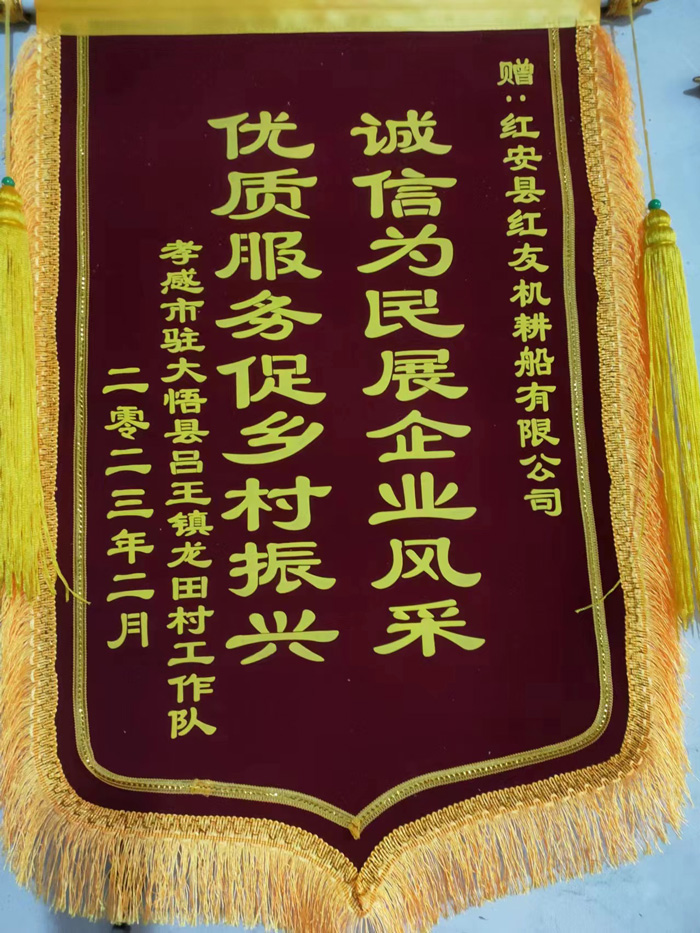 赠:红安县红友机耕船有限公司
诚信为民展企业风采
优质服务促乡村振兴
孝感市驻大悟县吕王镇龙田村工作队
二零二三年二月